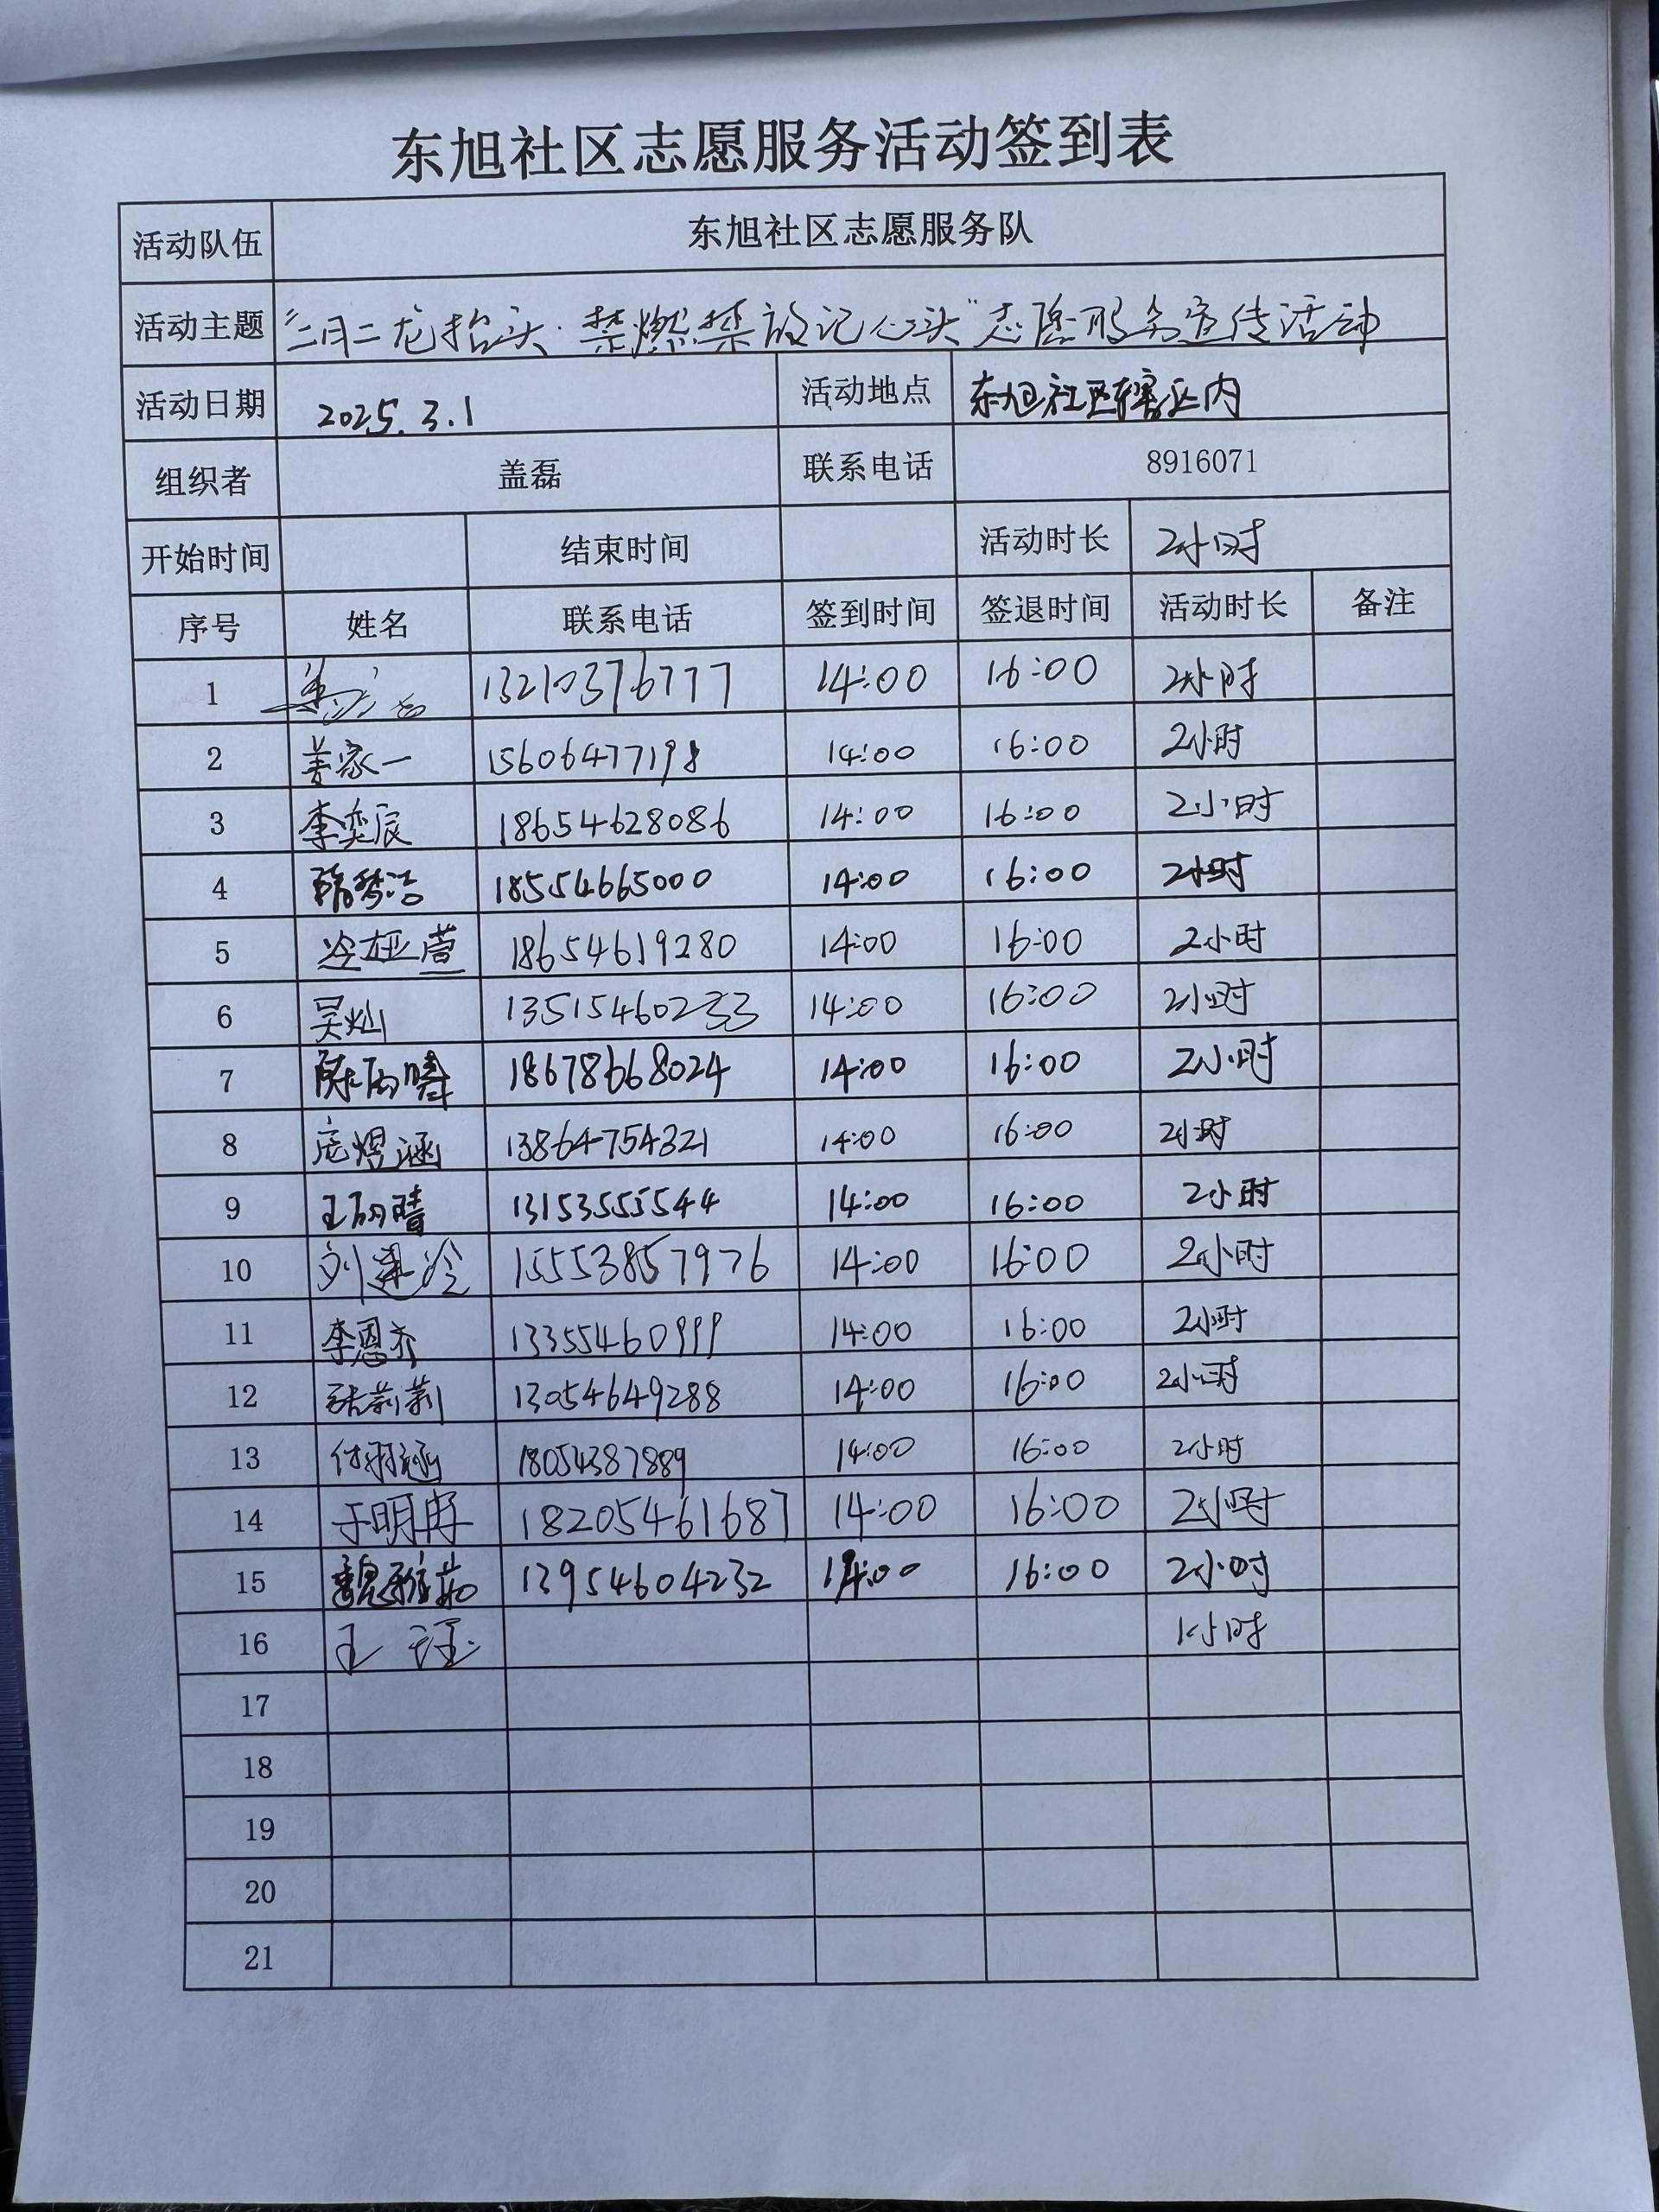 东旭社区志愿服务活动签到表
活动队伍 东旭社区志愿服务队
活动主题 “二月二龙抬头·禁燃禁放记心头”志愿服务宣传活动
活动日期 2025.3.1 活动地点 东旭社区辖区内
组织者 盖磊 联系电话 8916071
开始时间 结束时间 活动时长 2小时
序号 姓名 联系电话 签到时间 签退时间 活动时长 备注
1 13210376777 14:00 16:00 2小时
2 姜家一 15606477198 14:00 16:00 2小时
3 李奕辰 18654628086 14:00 16:00 2小时
4 18554665000 14:00 16:00 2小时
5 冷娅萱 18654619280 14:00 16:00 2小时
6 吴灿 13515460233 14:00 16:00 2小时
7 陈雨晴 18678668024 14:00 16:00 2小时
8 庞煜涵 13864754321 14:00 16:00 2小时
9 王雨晴 13153555544 14:00 16:00 2小时
10 刘建冷 15553857976 14:00 16:00 2小时
11 李恩齐 13355460999 14:00 16:00 2小时
12 张莉莉 13054649288 14:00 16:00 2小时
13 付羽涵 18054387889 14:00 16:00 2小时
14 于明冉 18205461687 14:00 16:00 2小时
15 魏雅茹 13954604232 14:00 16:00 2小时
16 王钰 1小时
17
18
19
20
21